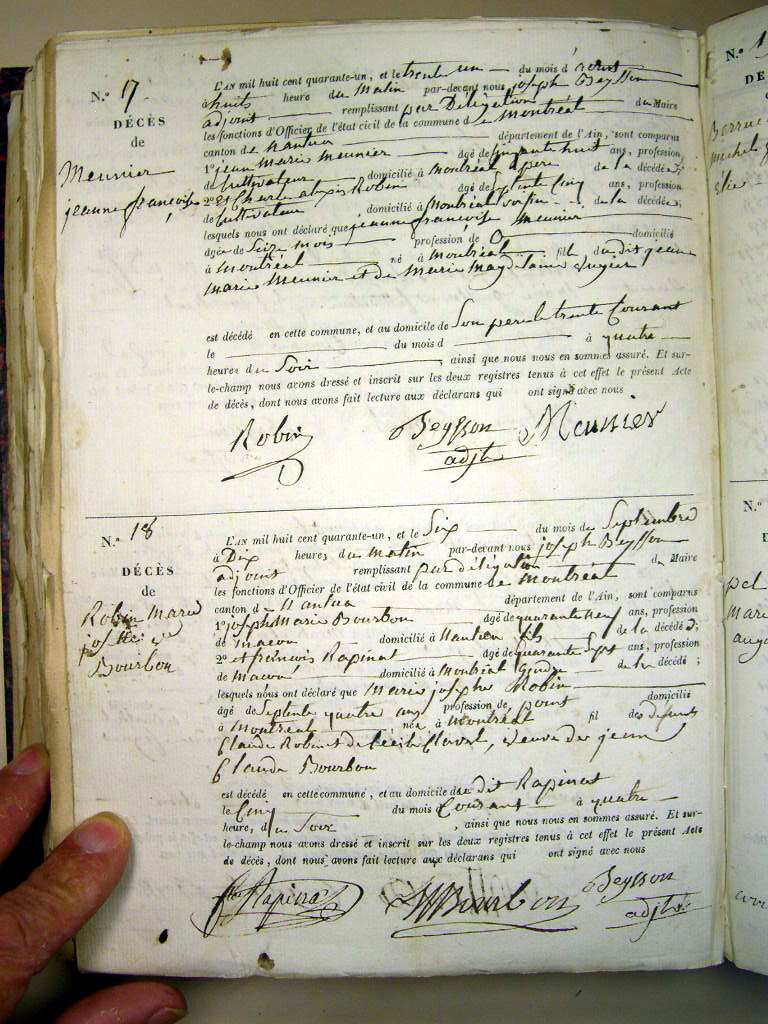 N.° 17
DÉCÈS
de
Meunier
jeanne françoise
L'AN mil huit cent quarante-un, et le trente un du mois d'aout
à huits heure du Matin par-devant nous joseph Beysson
adjoint remplissant par Délégation du Maire
les fonctions d'Officier de l'état civil de la commune de Montréal
canton de Nantua département de l'Ain, sont comparus
1° jean Marie Meunier âgé de cinquante huit ans, profession
de Cultivateur domicilié à Montréal père de la décédée;
2° et Charle alexis Robin âgé de Septente Cinq ans, profession
de Cultivateur domicilié à Montréal voisin de la décédée;
lesquels nous ont déclaré que jeanne françoise Meunier
âgée de Seize mois profession de 0 domicilié
à Montréal né à Montréal fille du dit jean
Marie Meunier et de Marie Magdelaine
est décédé en cette commune, et au domicile de Son père le trente Courant
le du mois d à quatre
heures du Soir, ainsi que nous nous en sommes assuré. Et sur-
le-champ nous avons dressé et inscrit sur les deux registres tenus à cet effet le présent Acte
de décès, dont nous avons fait lecture aux déclarans qui ont signé avec nous
Robin Beysson Meunier
adjt
N.° 18
DÉCÈS
de
Robin Marie
Bourbon
L'AN mil huit cent quarante-un, et le Six du mois de Septembre
à Dix heures du Matin par-devant nous joseph Beysson
adjoint remplissant par délégation du Maire
les fonctions d'Officier de l'état civil de la commune de Montréal
canton de Nantua département de l'Ain, sont comparus
1° joseph Marie Bourbon âgé de quarante neuf ans, profession
de macon domicilié à Nantua fils de la décédée;
2° et françois Rapinat âgé de quarante Sept ans, profession
de Macon domicilié à Montréal Gendre de la décédé;
lesquels nous ont déclaré que Marie josephe Robin domicilié
âgé de Septente quatre ans profession de point
à Montréal née à Montréal fil des defunts
Claude Robin et de Cécile Clerc, veuve de jean
Claude Bourbon
est décédé en cette commune, et au domicile du dit Rapinat
le Cinq du mois Courant à quatre
heure, du Soir, ainsi que nous nous en sommes assuré. Et sur-
le-champ nous avons dressé et inscrit sur les deux registres tenus à cet effet le présent Acte
de décès, dont nous avons fait lecture aux déclarans qui ont signé avec nous
Rapinat Bourbon Beysson
adjt
N.°
DE
N.°